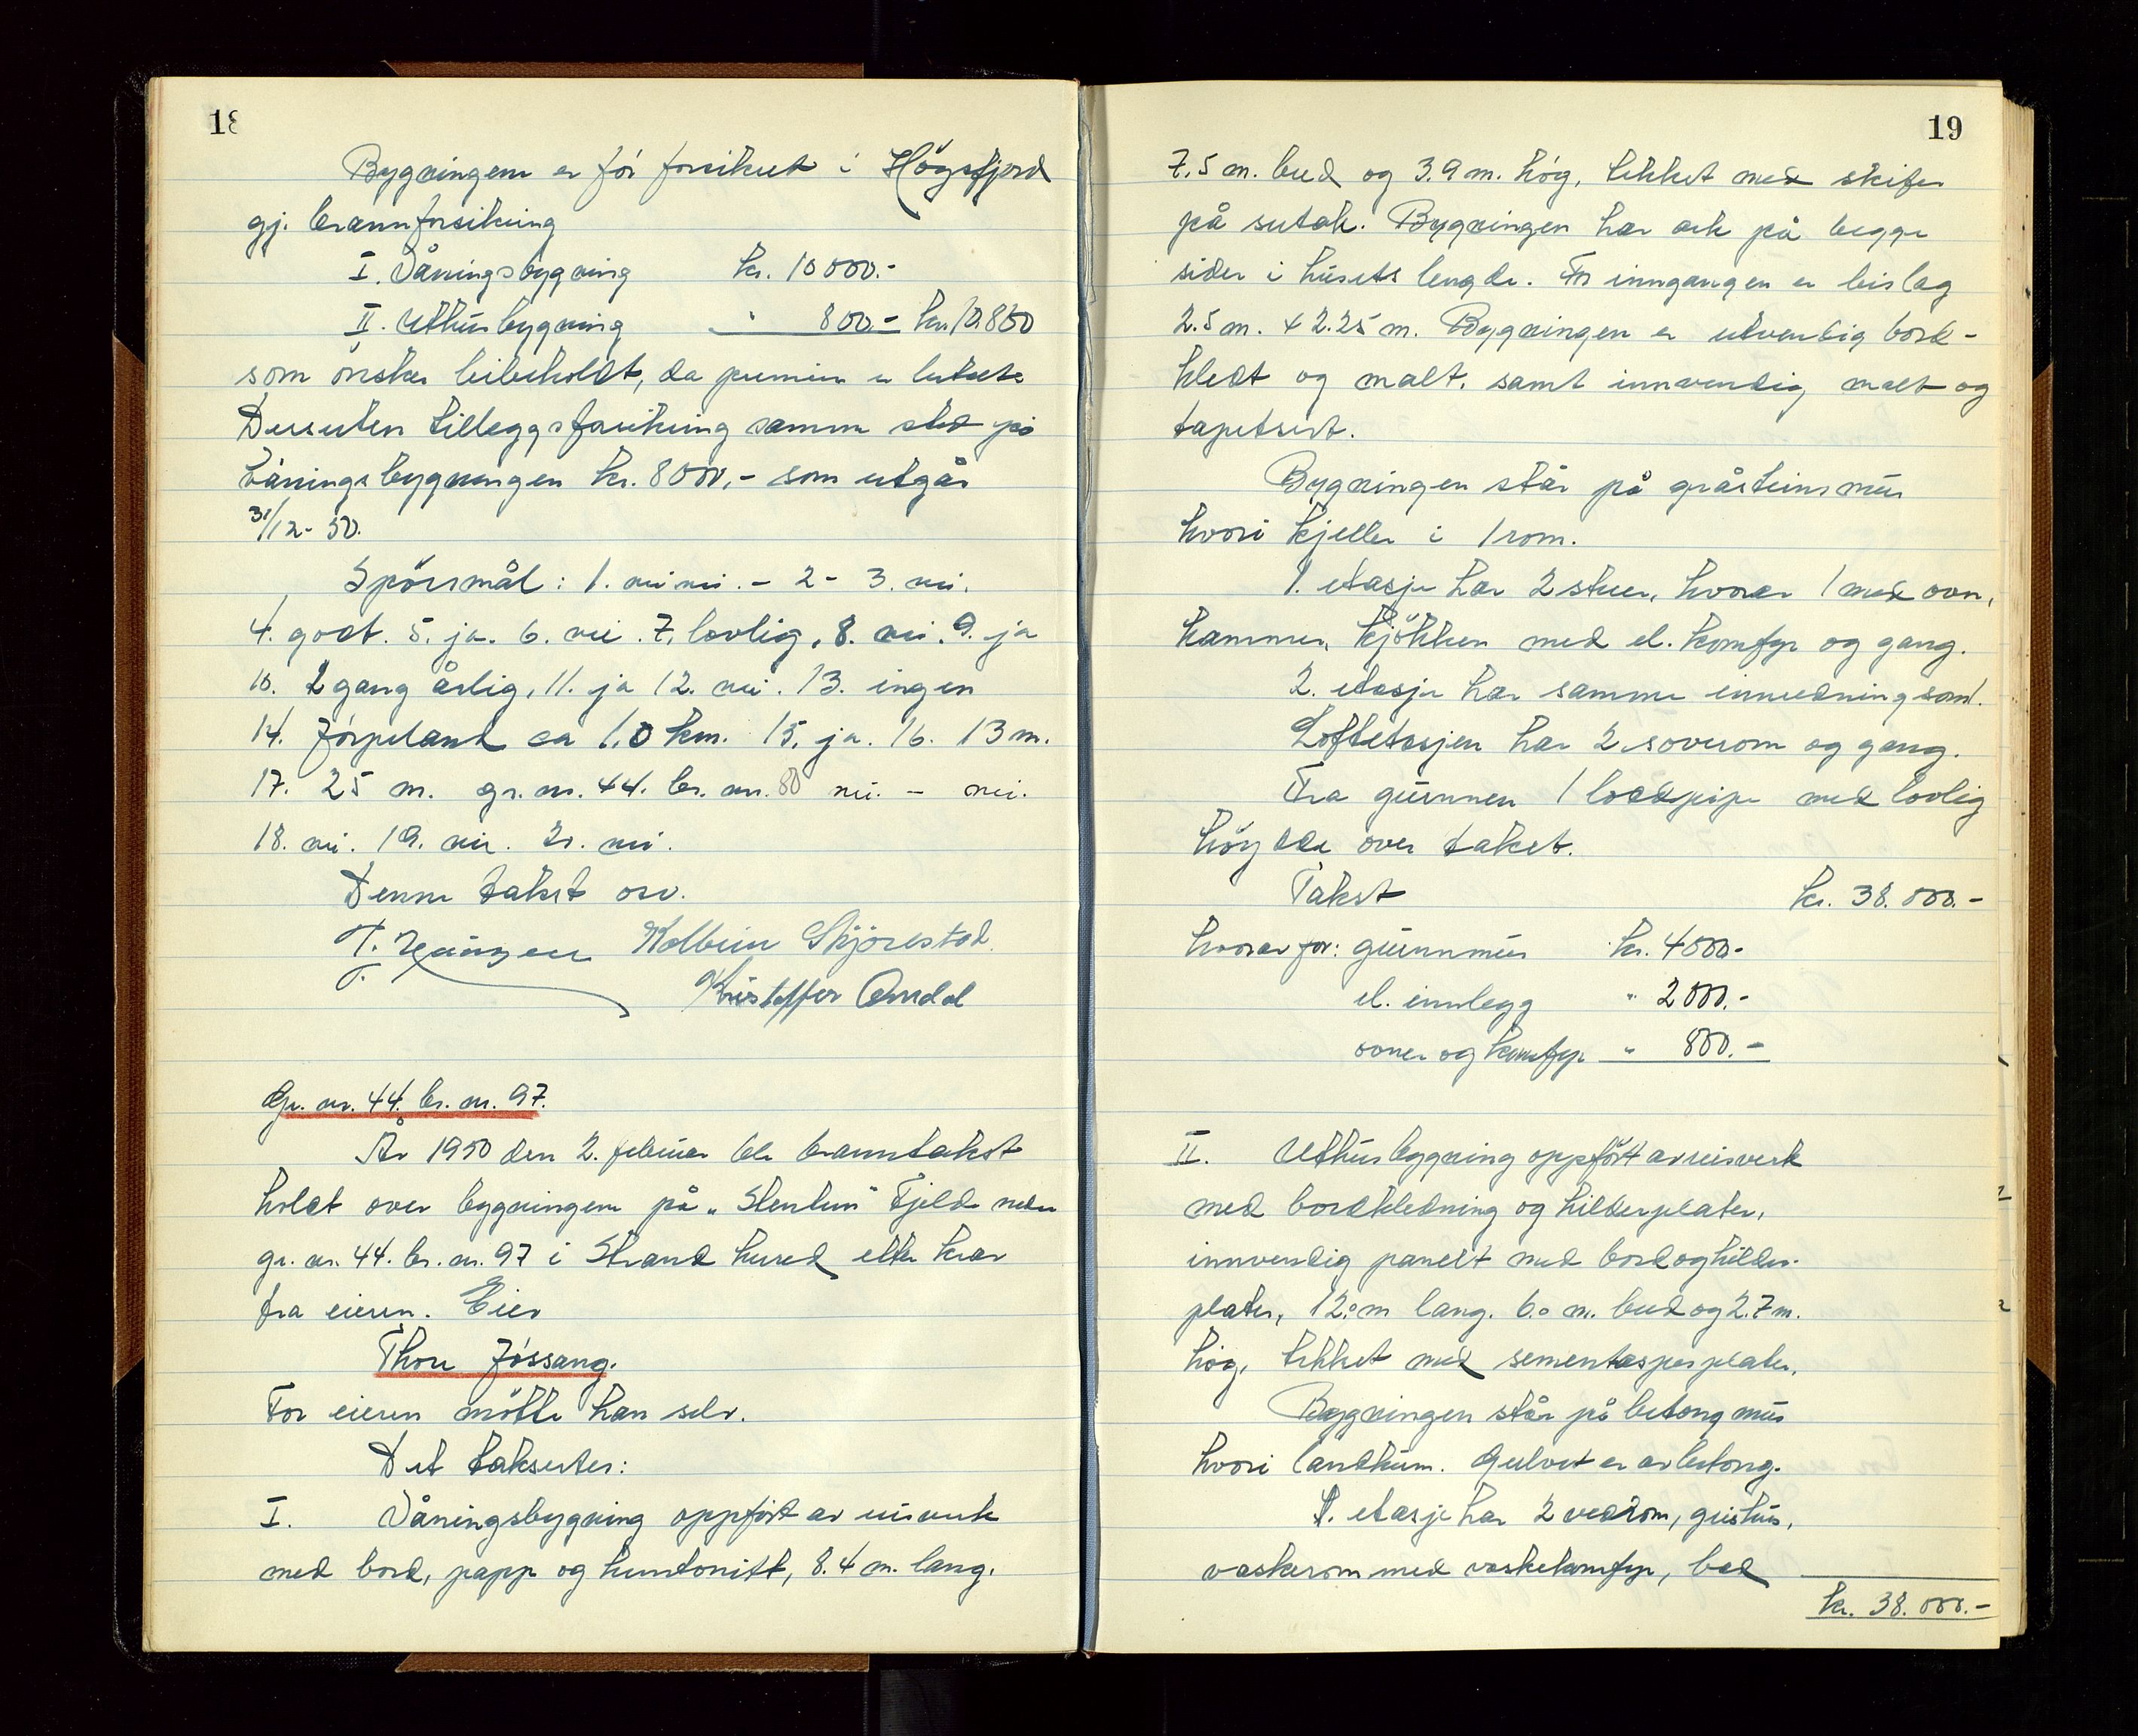 18
Bygningene er för forsikret i Högsfjord
gj. brannforsikring
I. Våningsbygning kr. 10000.-
II. Uthusbygning " 800.- kr. 10800
som önskes bibeholdt, da premien er betalt.
Dessuten tilleggsforsikring samme sted på
våningsbygningen kr. 8000,- som utgår
31/12-50.
Spörsmål: 1. nei nei. - 2 - 3. nei.
4. godt. 5. ja. 6. nei. 7. lovlig. 8. nei. 9. ja
10. 2 gang årlig, 11. ja 12. nei. 13. ingen
14. Jörpeland ca 1,0 km. 15. ja. 16. 13 m.
17. 25 m. gr. nr. 44. br. nr. 80 nei. - nei.
18. nei. 19. nei. 20. nei.
Denne takst osv.
T. Kolbein Skjörestad.
Kristoffer Amdal
Gr. nr. 44. br. nr. 97.
År 1950 den 2. februar ble branntakst
holdt over bygningene på „Stentun" Fjelde nedre
gr. nr. 44. br. nr. 97 i Strand herred etter krav
fra eieren. Eier
Thore Jössang.
For eieren mötte han selv.
Det takseres:
I. Våningsbygning oppfört av reisverk
med bord, papp og huntonitt, 8.4 m. lang.
19
7.5 m. bred og 3.9 m. hög, tekket med skifer
på sutak. Bygningen har ark på begge
sider i husets lengde. For inngangen er bislag
2.5 m. + 2.25 m. Bygningen er utvendig bord-
kledt og malt, samt innvendig malt og
tapetsert.
Bygningen står på gråsteinsmur
hvori kjeller i 1 rom.
1. etasje har 2 stuer, hvorav 1 med ovn,
kammer, kjökken med el. komfyr og gang.
2. etasje har samme innredning som 1.
Loftetasjen har 2 soverom og gang.
Fra grunnen 1 loddpipe med lovlig
höydde over taket.
Takst kr. 38.000.-
hvorav for: grunnmur kr. 4000.-
el. innlegg " 2000.-
ovner og komfyr " 800.-
II. Uthusbygning oppfört av reisverk
med bordkledning og hilderplater,
innvendig panelt med bord og hilder-
plater, 12.0 m lang. 6.0 m. bred og 2.7 m.
hög, tekket med sementasperplater.
Bygningen står på betongmur
hvori landkum. Gulvet er av betong.
1. etasje har 2 vedrom, grishus,
vaskerom med vaskekomfyr, bad
kr. 38.000.-